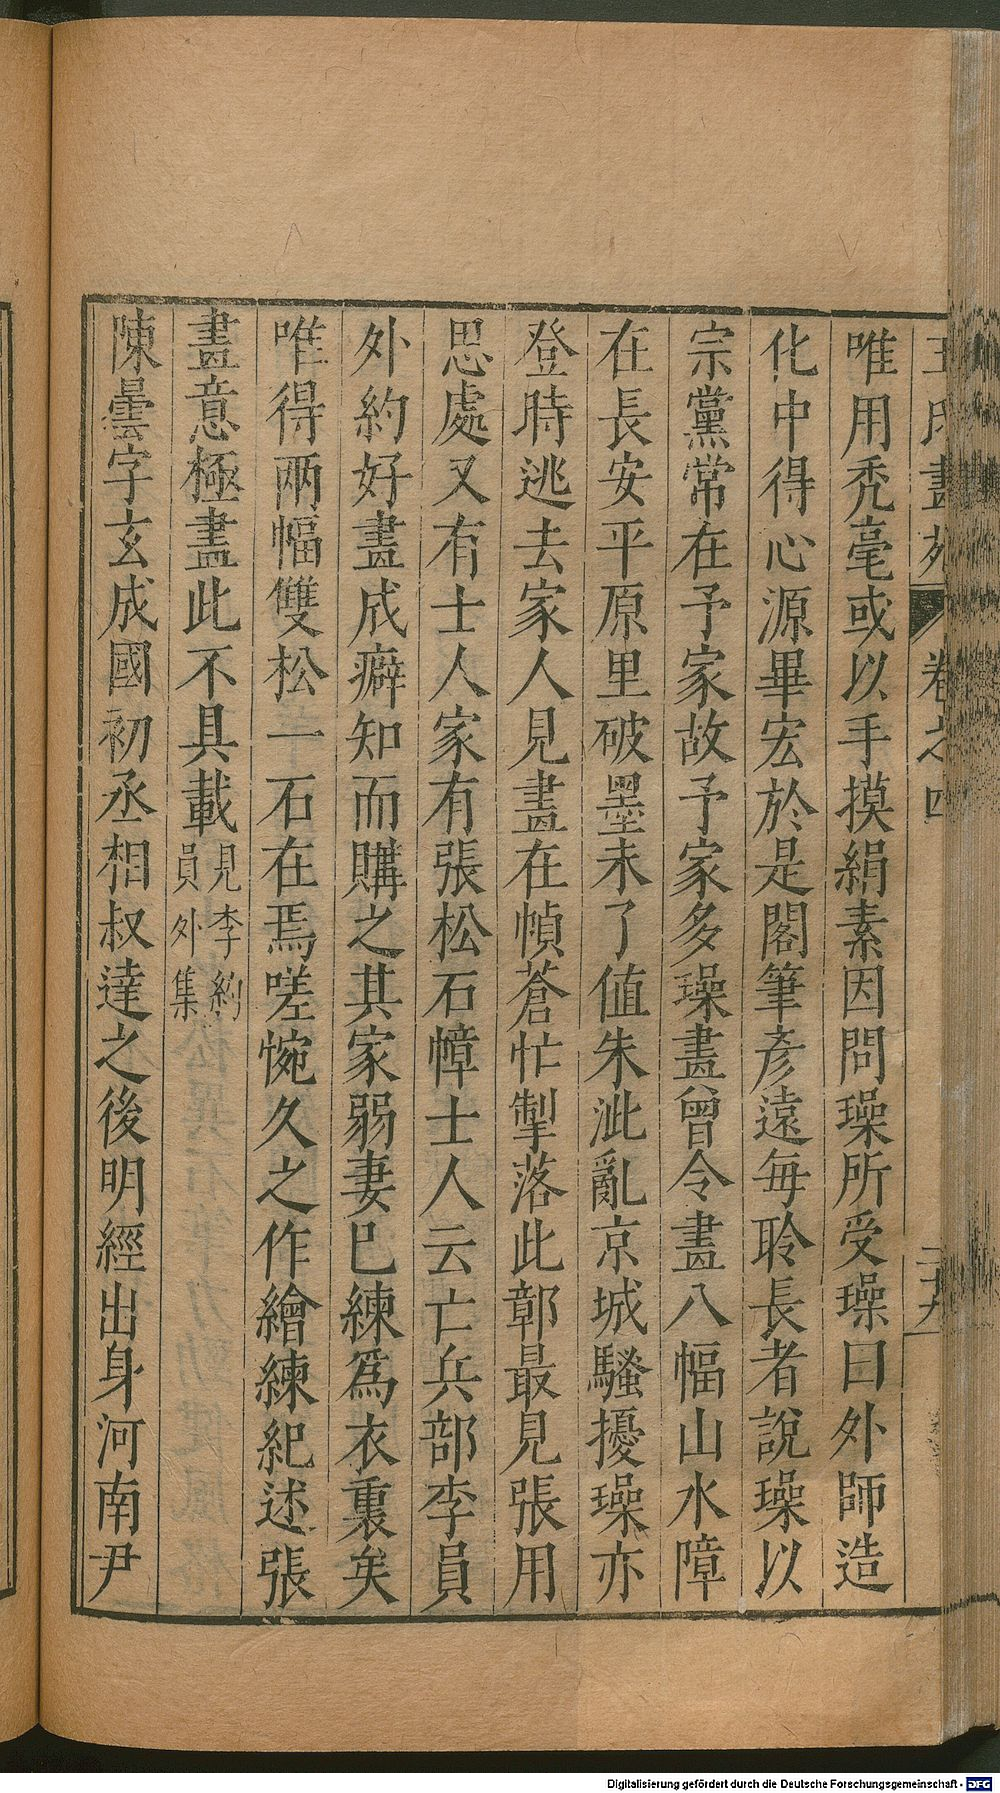 王氏畫苑 卷之四 二十九
唯用秃毫或以手摸絹素因問璪所受璪曰外師造
化中得心源畢宏於是閣筆彥遠每聆長者說璪以
宗黨常在予家故予家多璪畫曾令畫八幅山水障
在長安平原里破墨未了值朱泚亂京城騷擾璪亦
登時逃去家人見畫在幀蒼忙掣落此鄣最見張用
思處又有士人家有張松石幛士人云亡兵部李員
外約好畫成癖知而購之其家弱妻已練爲衣裏矣
唯得兩幅雙松一石在焉嗟惋久之作繪練紀述張
畫意極盡此不具載見李約員外集
陳曇字玄成國初丞相叔達之後明經出身河南尹
Digitalisierung gefördert durch die Deutsche Forschungsgemeinschaft - DFG